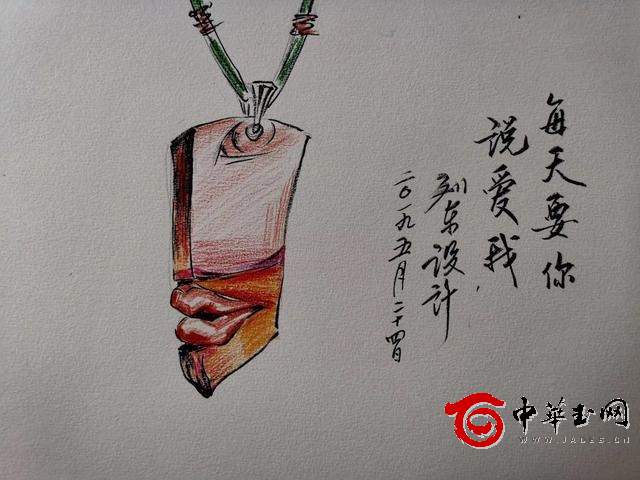 每天要你
说爱我
列东设计
二〇一九五月二十四日
中華玉网
WWW.JADES.CN